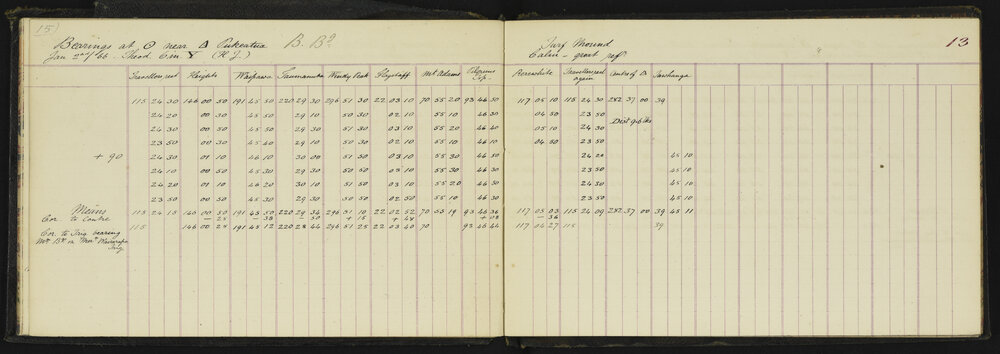 15
Bearings at ⊙ near △ Pukeatua B. Bd
Jan 2nd/66. Theod. 6 in. Y (H. J.)
Turf Mound
Cabin - great
13
Travellers rest Heights Waipawa Taumanuka Windy Peak Flagstaff Mt Adams Pilgrims Rerewhite Travellers rest again Centre of △ Tawhanga
115 24 30 146 00 50 191 45 50 220 29 30 296 51 30 22 03 10 70 55 20 93 46 30 117 05 10 115 24 30 282 37 00 39
24 20 00 50 45 50 29 10 50 30 02 10 55 10 46 30 04 50 23 50
24 30 00 50 45 50 29 30 51 30 03 10 55 20 46 40 05 10 24 30 Dist 96 lks
23 50 00 30 45 40 29 10 50 30 02 10 55 10 46 10 04 50 23 50
+ 90 24 30 01 10 46 10 30 00 51 30 03 10 55 30 46 50 24 20 45 10
24 10 00 50 45 50 29 30 50 50 03 10 55 30 46 30 24 30 45 10
24 20 01 10 46 20 30 10 51 50 03 10 55 20 46 50 24 30 45 10
23 50 00 50 45 30 29 30 50 50 02 50 55 10 46 30 23 50 45 10
Means 115 24 15 146 00 50 191 45 50 220 29 34 296 51 10 22 02 52 70 55 19 93 46 36 117 05 03 115 24 09 282 37 00 39 45 11
Cor to Centre - 25 - 38 - 50 + 15 + 48 + 08 - 36
Cor to Trig bearing 115 146 00 25 191 45 12 220 28 44 296 51 25 22 03 40 70 93 46 44 117 04 27 115 39
Trig